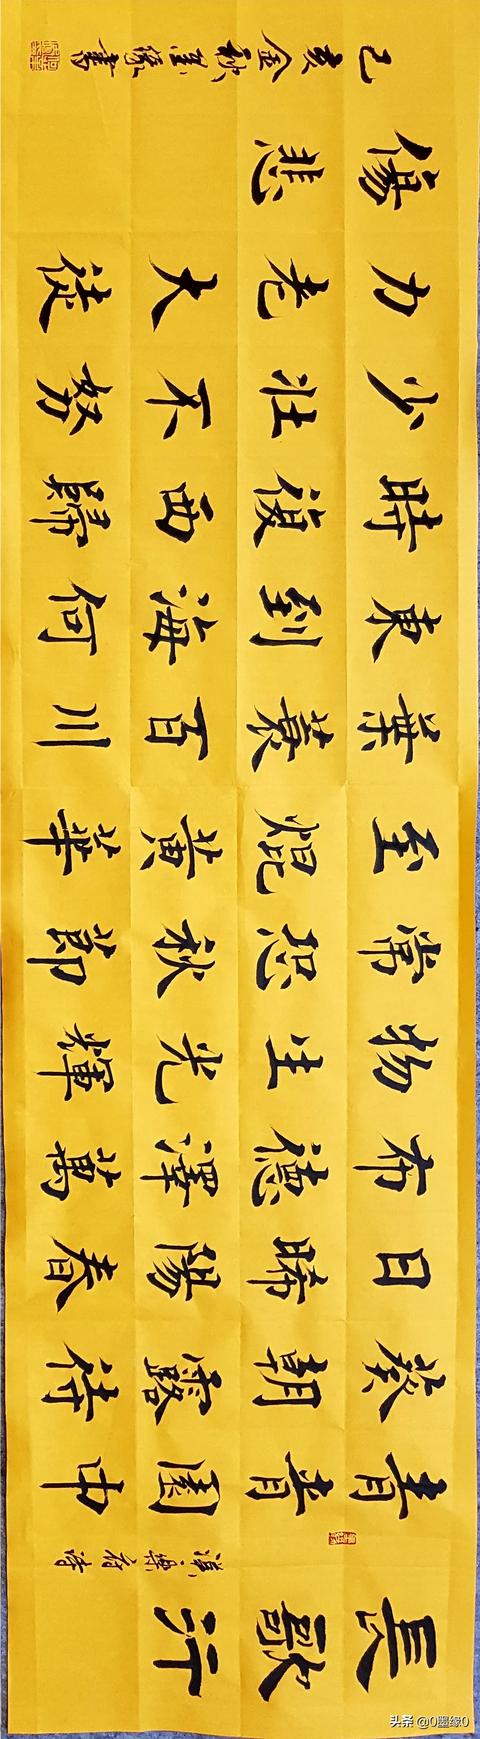 長歌行
漢樂府詩
青青園中
葵朝露待
日晞陽春
布德澤萬
物生光輝
常恐秋節
至焜黃華
葉衰百川
東到海何
時復西歸
少壯不努
力老大徒
傷悲
己亥金秋墨緣書
头条 @0墨缘0